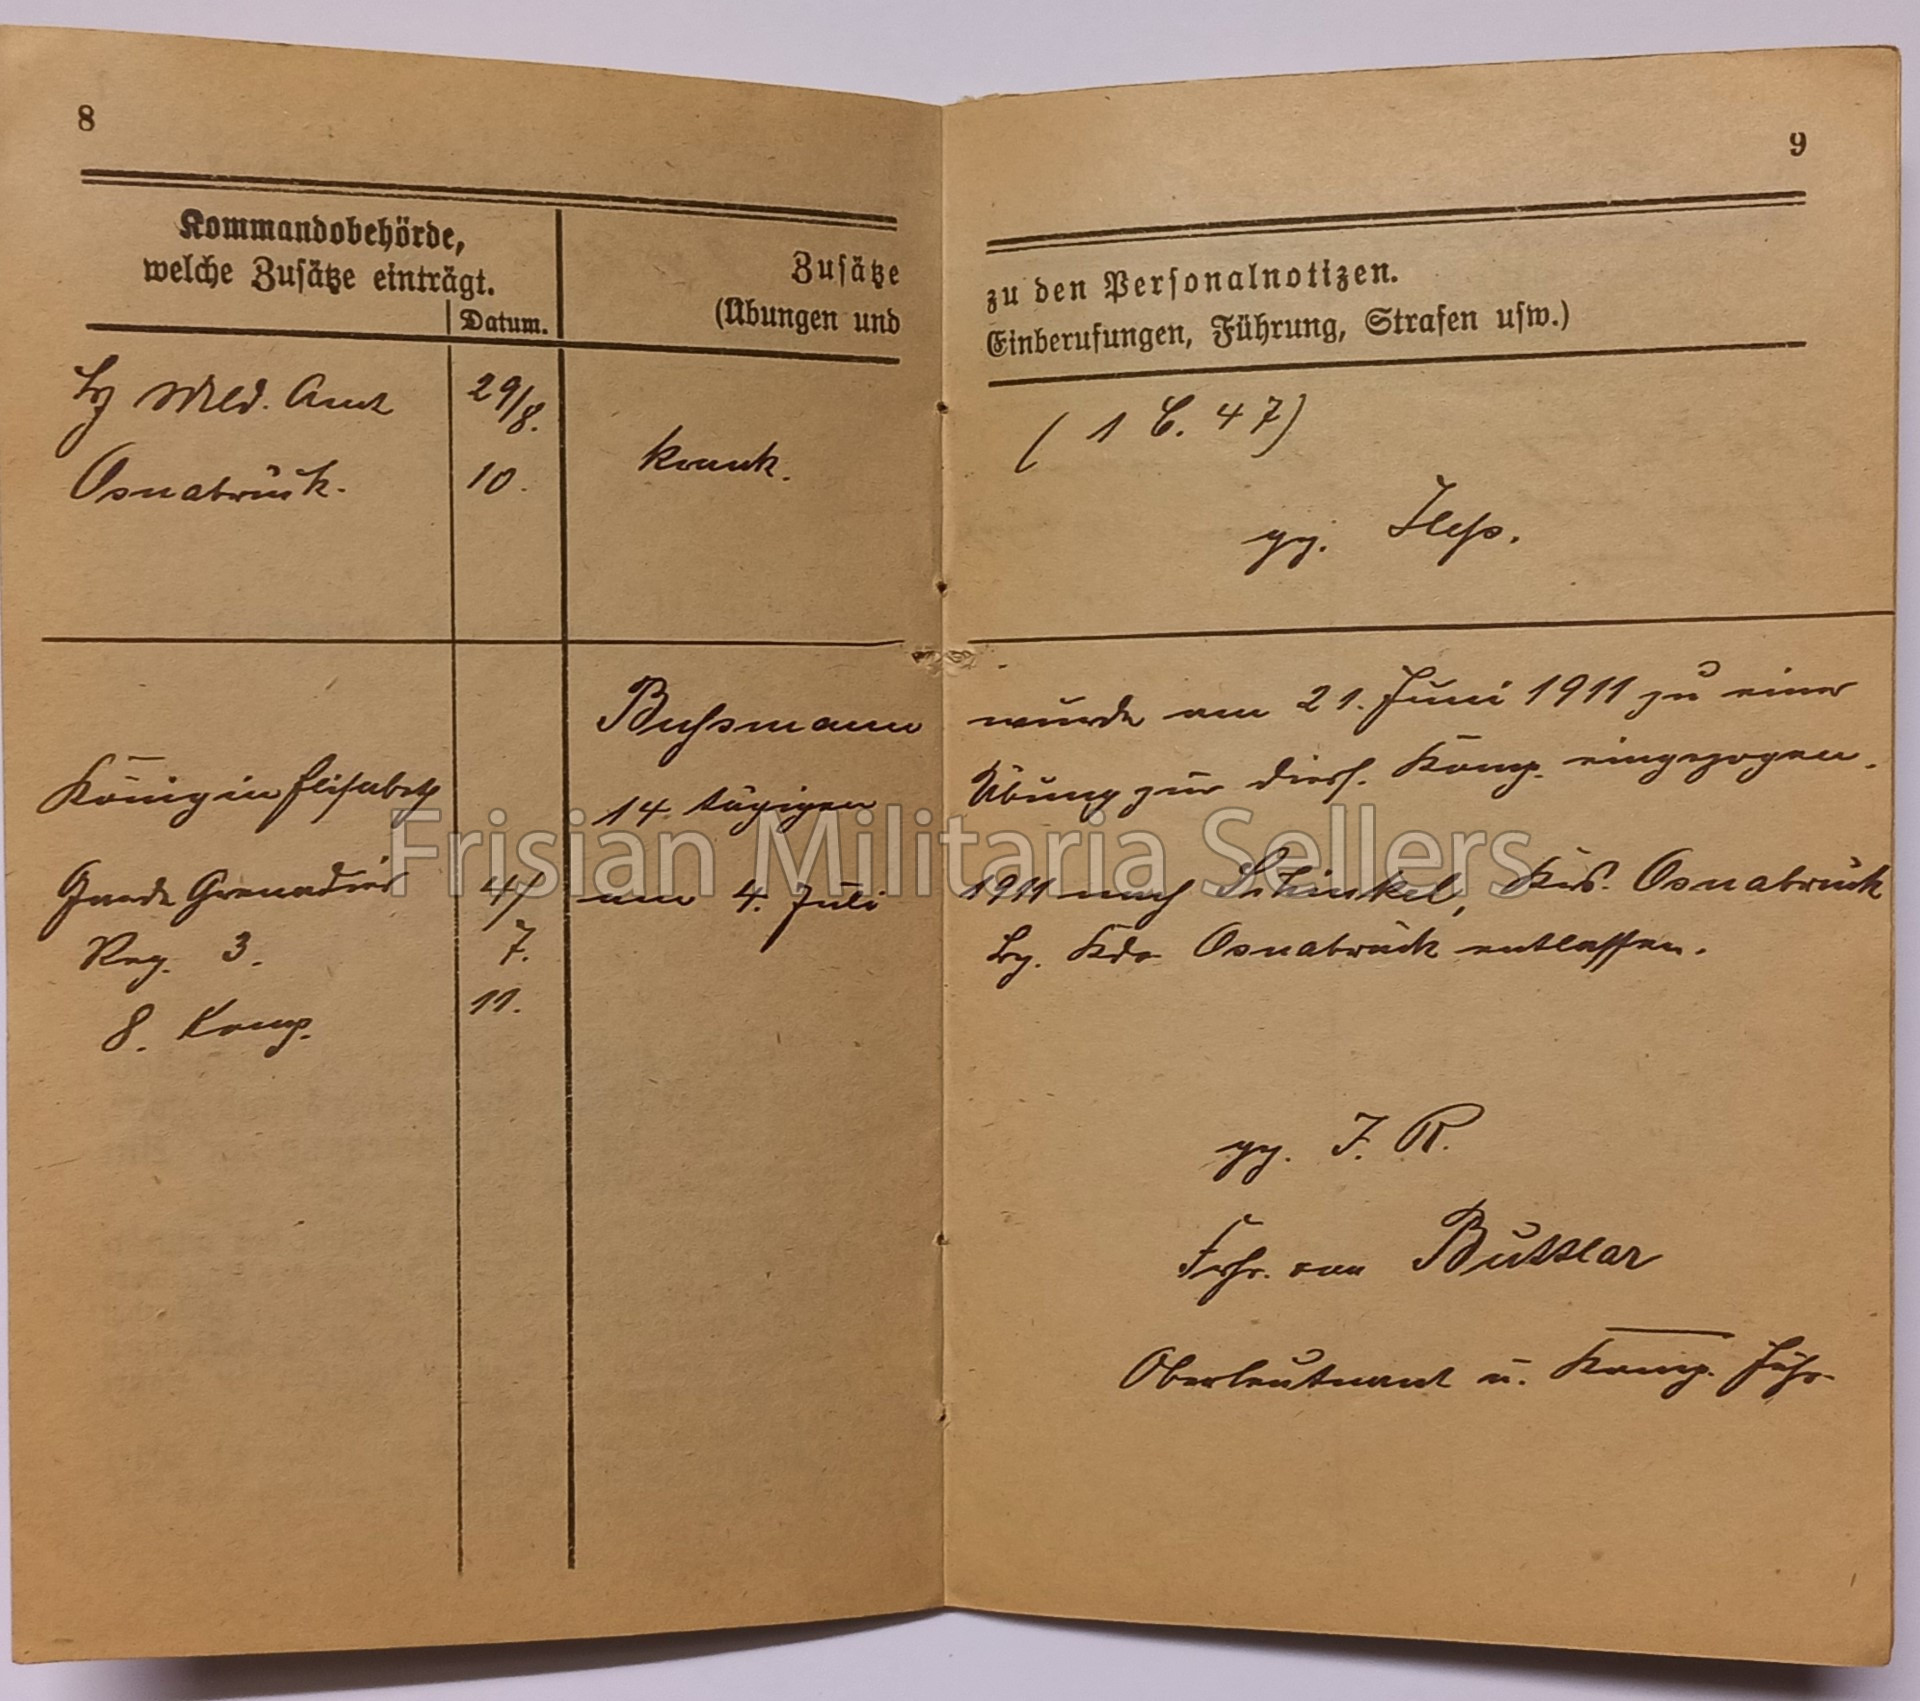 8
Kommandobehörde,
welche Zusätze einträgt.
Datum.
Zusätze
(Übungen und
Bz Mld. Amt
29/8.
Osnabrück.
10.
krank.
Bußmann
Königin Elisabeth
14 tägigen
Garde Grenadier
4/
am 4. Juli
Reg. 3.
7.
8. Komp.
11.
9
zu den Personalnotizen.
Einberufungen, Führung, Strafen usw.)
(1 C. 47)
gz.
wurde am 21. Juni 1911 zu einer
Übung zur diess. Komp. eingezogen.
1911 nach Schinkel, Krs. Osnabrück
Bz. Kdo Osnabrück entlassen.
gz. F. R.
Frhr. von Buttlar
Oberleutnant u. Komp. Führ.
Frisian Militaria Sellers